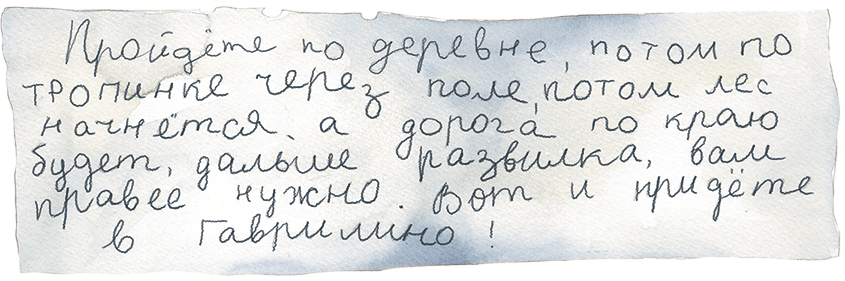 Пройдёте по деревне, потом по
тропинке через поле, потом лес
начнётся, а дорога по краю
будет, дальше развилка, вам
правее нужно. Вот и придёте
в Гаврилино!